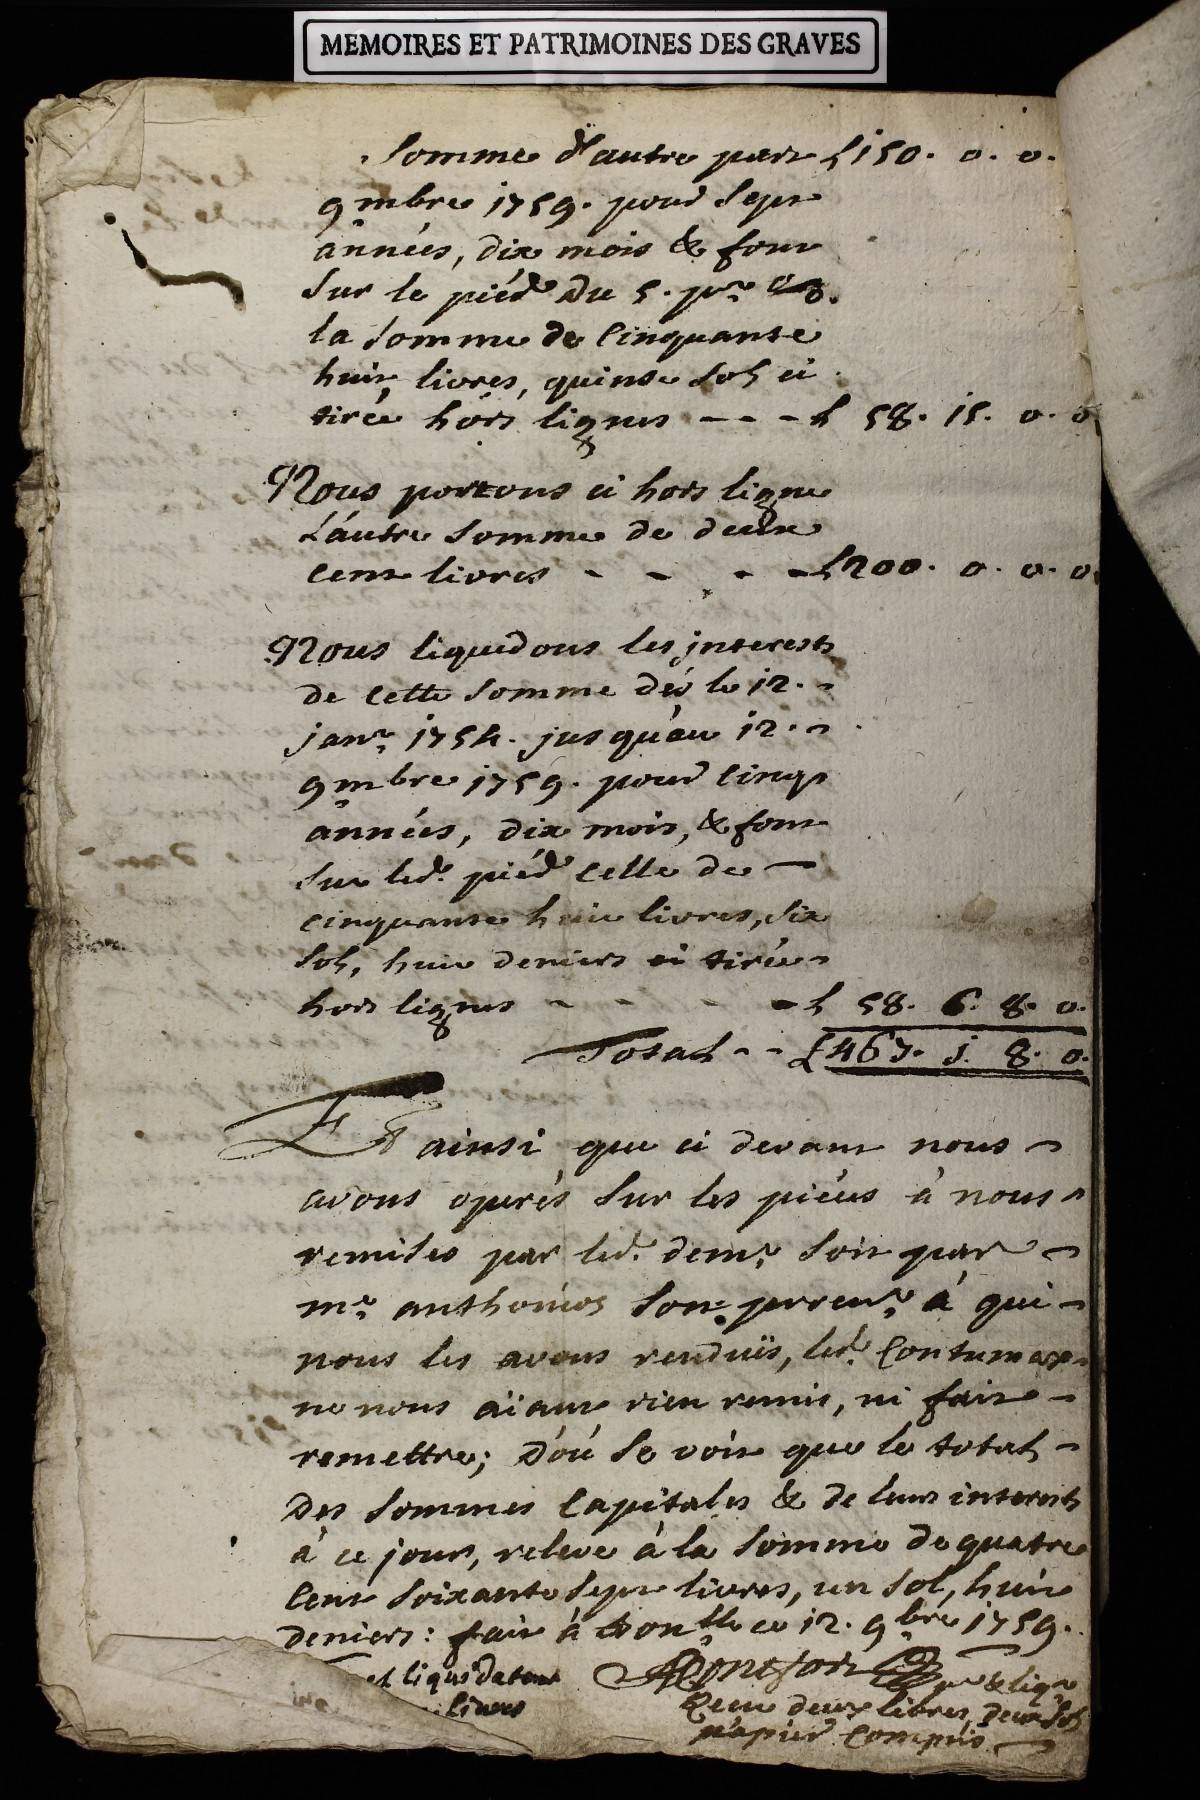 MEMOIRES ET PATRIMOINES DES GRAVES
Somme d'autre part £ 150. 0. 0.
9mbre 1759. pour sept
années, dix mois & font
sur le piéd du 5. pr
la somme de cinquante
huit livres, quinse sols ci
tirée hors lignes --- £ 58. 15. 0. 0
Nous portons ci hors ligne
L'autre somme de deux
cent livres - - - - £ 200. 0. 0. 0
Nous liquidons les jnterests
de cette somme dès le 12.
janr. 1754. jusqu'au 12.
9mbre 1759. pour cinq
années, dix mois, & font
sur led. piéd celle de
cinquante huit livres, six
sols, huit deniers ci tirée
hors lignes - - - - £ 58. 6. 8. 0.
Total -- £ 467. 1. 8. 0.
Et ainsi que ci devant nous
avons operés sur les piéces à nous
remises par led. demr. soit par
mr. anthonios son procur. à qui
nous les avons renduës, led. contumax
ne nous aïant rien remis, ni fait
remettre; D'où se voit que le total
des sommes capitales & de leurs interests
à ce jour, releve à la somme de quatre
cent soixante sept livres, un sol, huit
deniers: fait à ce 12. 9bre 1759.
et liquidateur
livres
& liqr
Recu deux livres, deux sols
papier compris